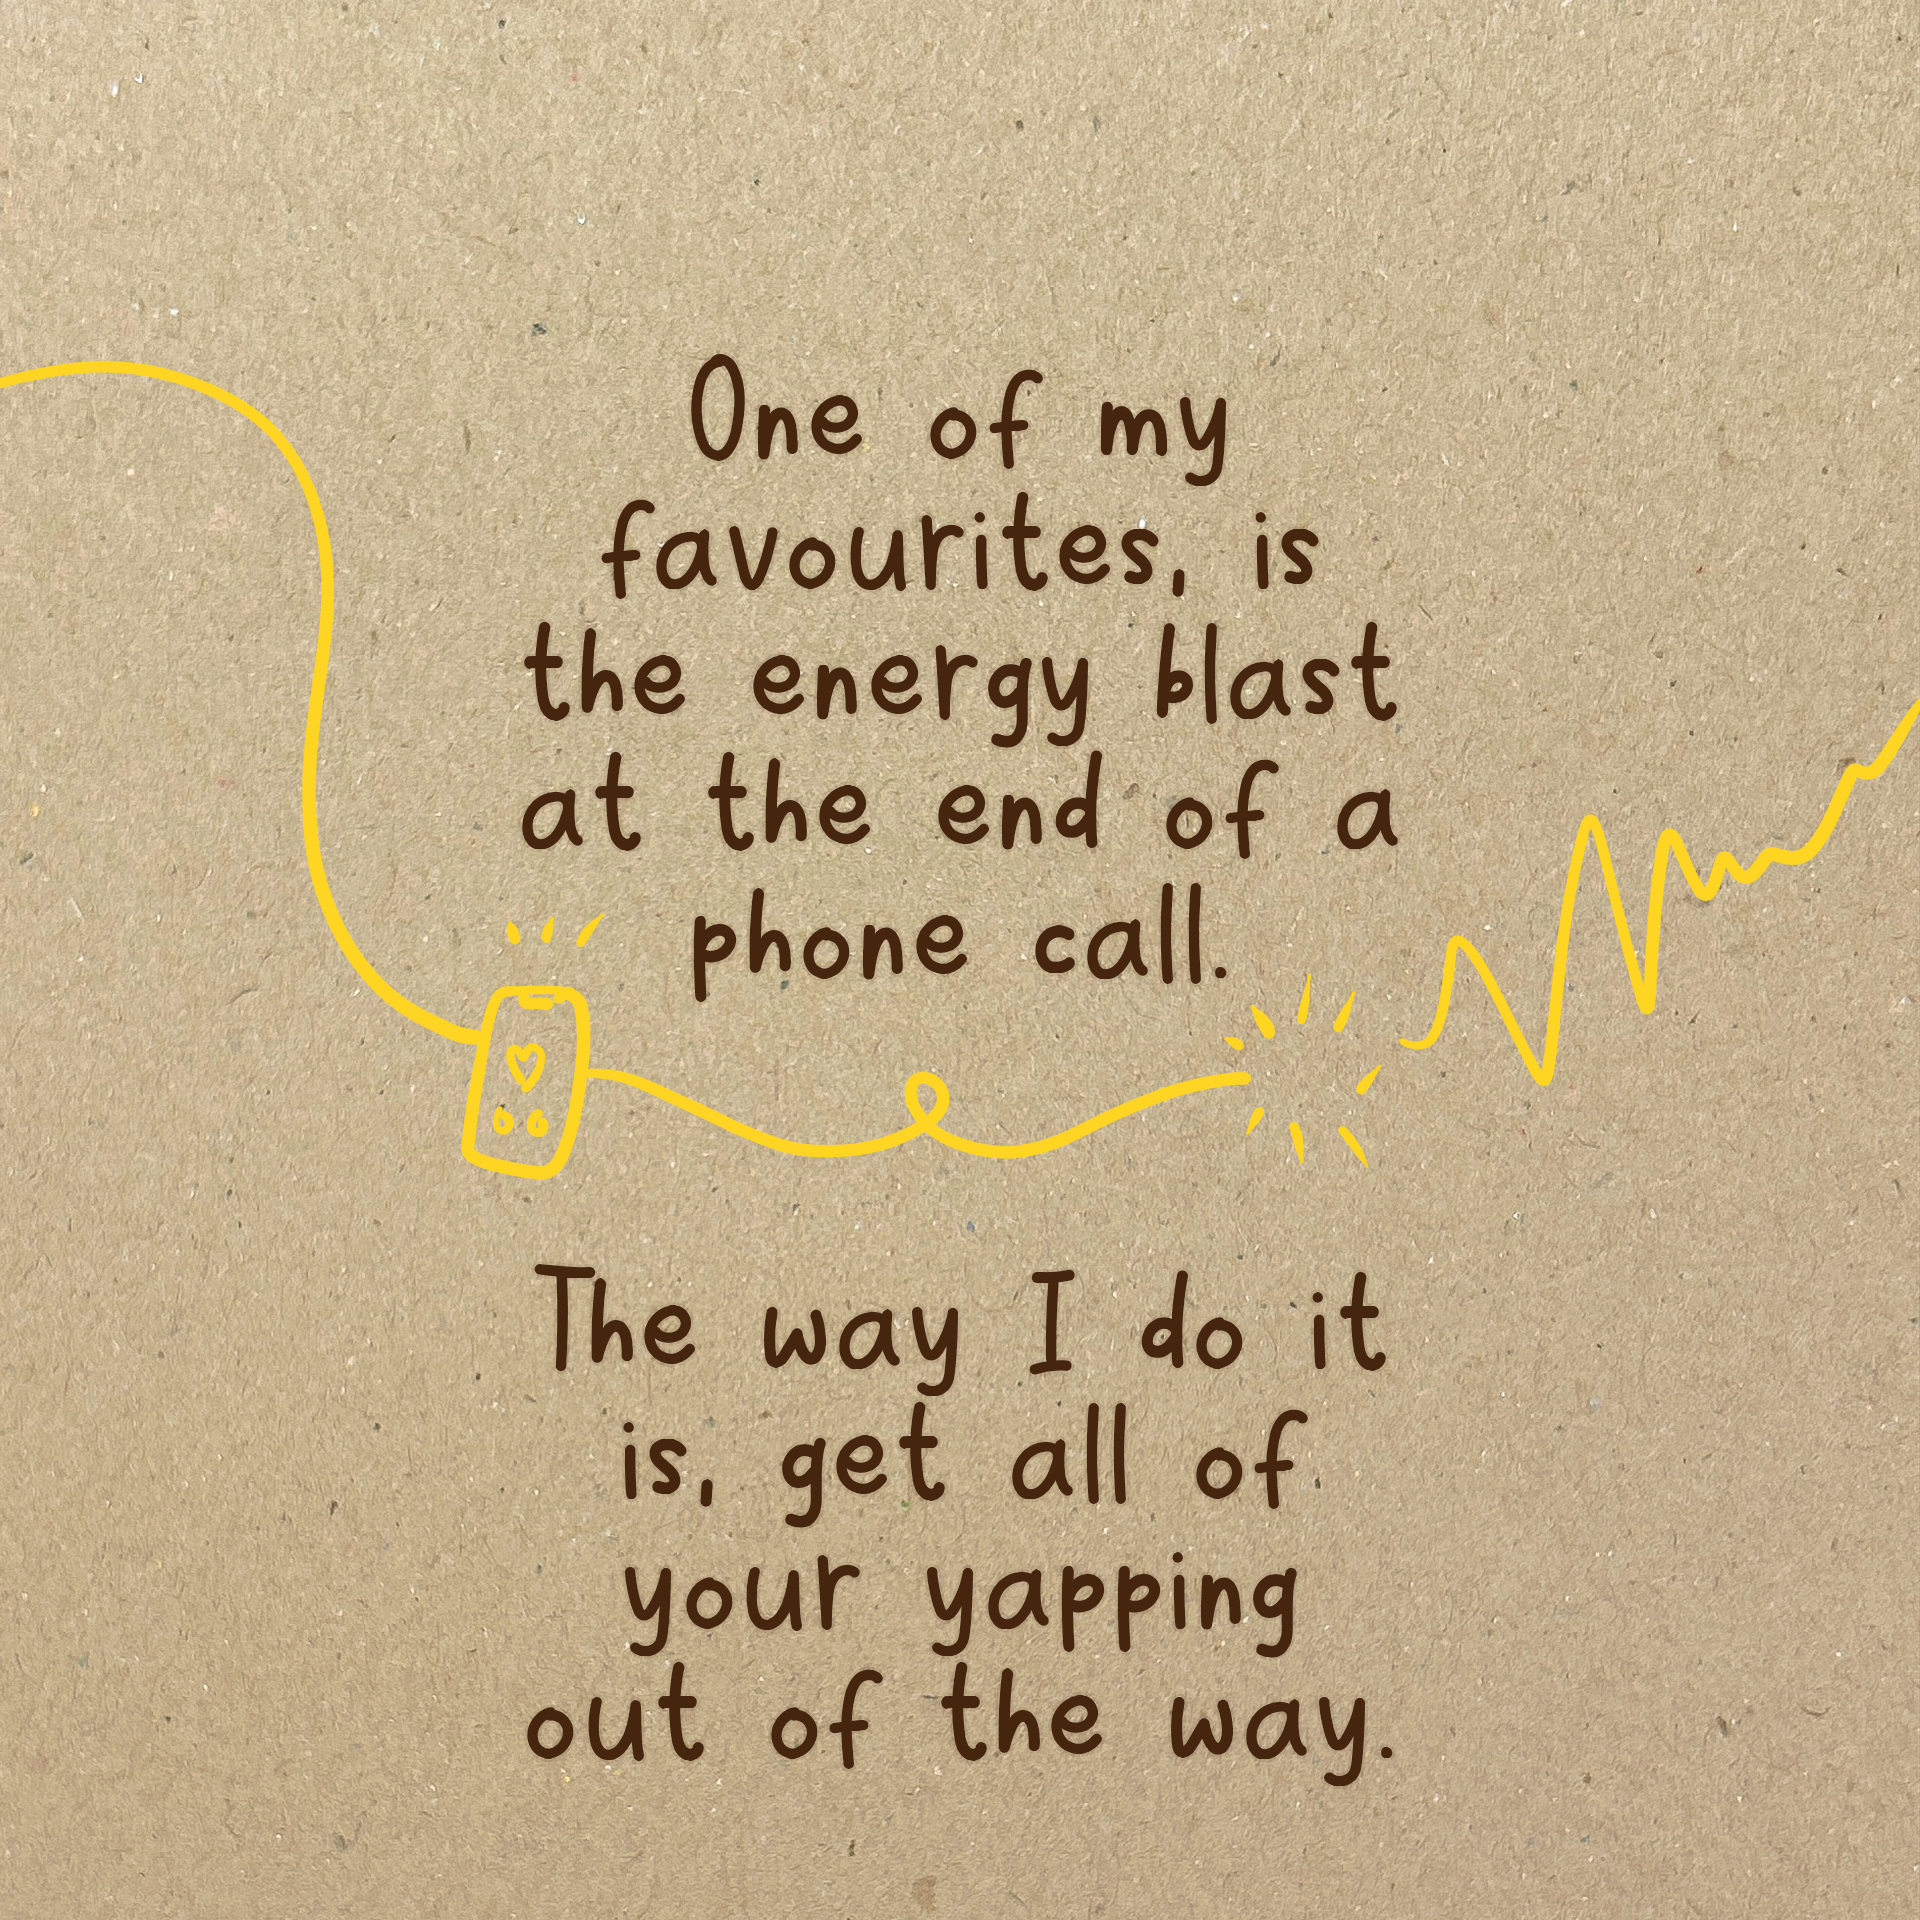 One of my
favourites, is
the energy blast
at the end of a
phone call.
The way I do it
is, get all of
your yapping
out of the way.